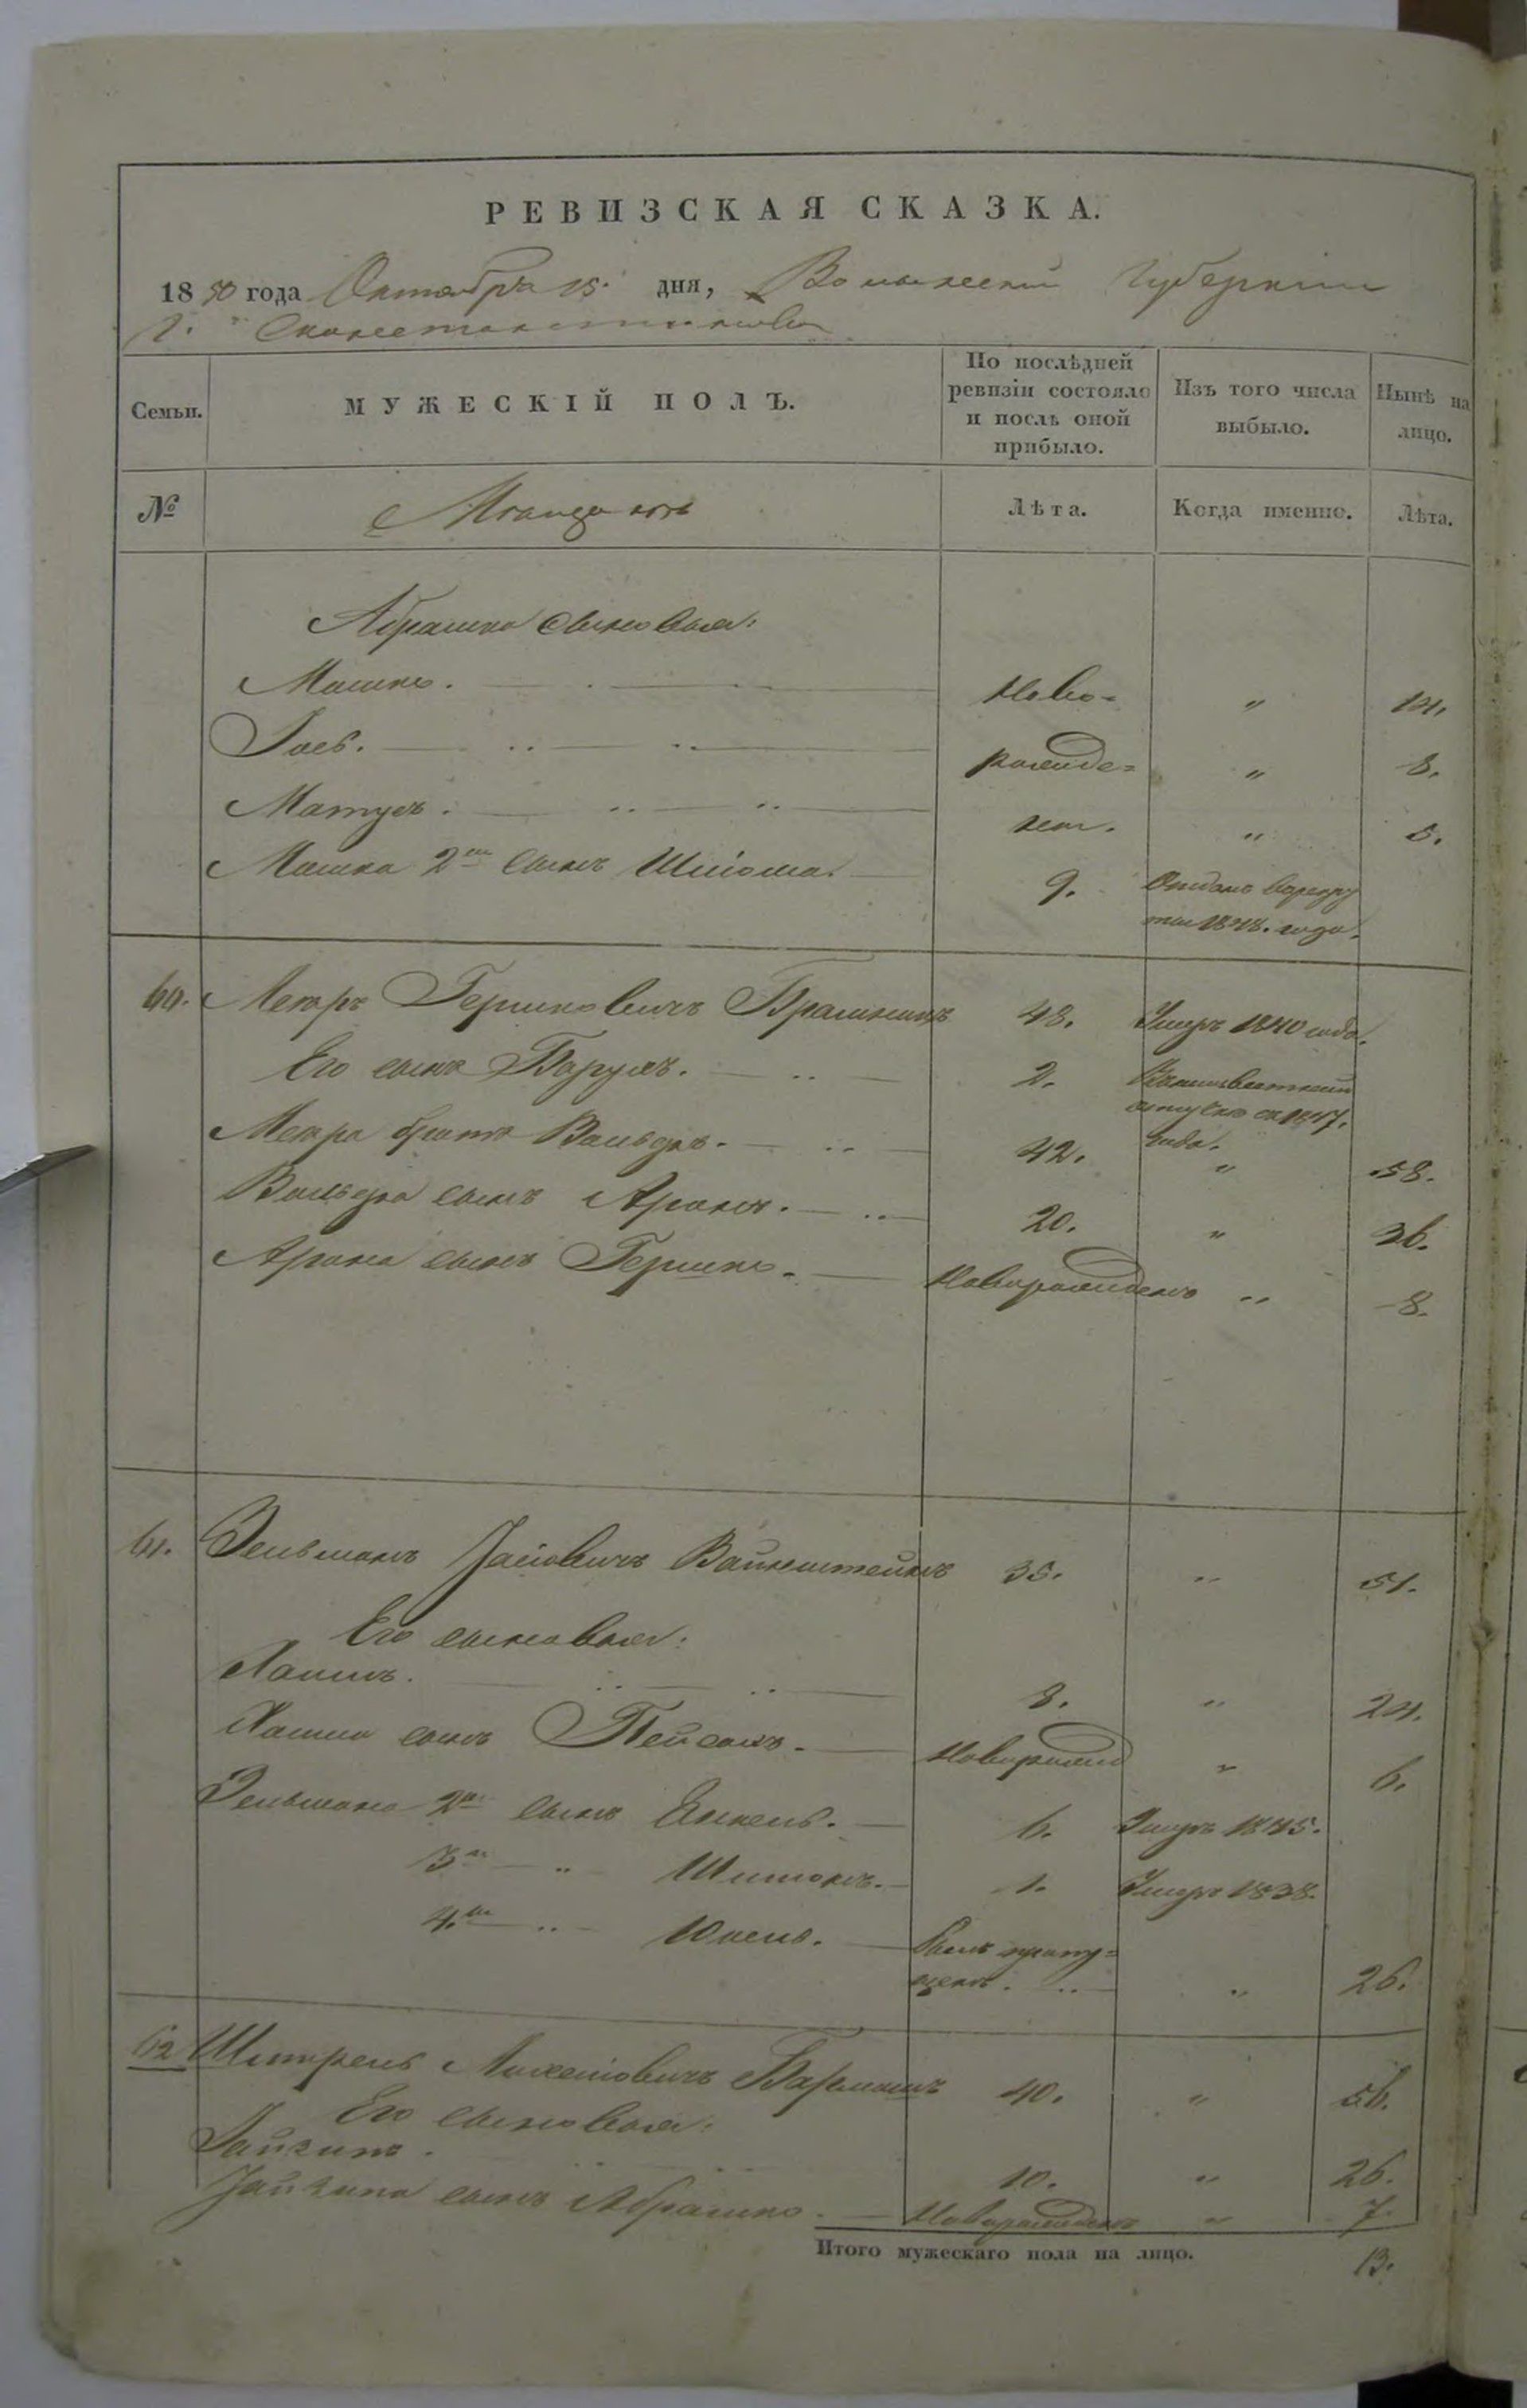 РЕВИЗСКАЯ СКАЗКА.
1850 года Октября 15. дня, Волынской Губернии
Г.
Семьи. МУЖЕСКІЙ ПОЛЪ. По послѣдней ревизіи состояло и послѣ оной прибыло. Изъ того числа выбыло. Нынѣ на лицо.
№ Лѣта. Когда именно. Лѣта.
Абрашка сыновья:
Мошко. Ново- " 14.
Іось. рожде- " 8.
Матусъ. ни. " 5.
Мошка 2й сынъ Шліома. 9. Отданъ въ рекру
ты 1848. года.
60. Мееръ Гершковичъ 48. Умеръ 1840 года.
Его сынъ Барухъ. 2. Въ неизвѣстной
отлучкѣ съ 1847.
года.
Меера братъ 42. " 58.
сынъ Аронъ. 20. " 36.
Арона сынъ Гершко. Новорожденъ " 8.
61. Зельманъ Вайнштейнъ 35. " 51.
Его сыновья:
Хаимъ. 8. " 24.
Хаима сынъ Пейсахъ. Новорожд " 6.
Зельмана 2й сынъ Янкель. 6. Умеръ 1845.
3й " Шимонъ. 1. Умеръ 1838.
4й " Юкель. Былъ пропу-
щенъ. " 26.
62 40. " 56.
Его сыновья:
10. " 26.
сынъ Абрашко. Новорожденъ " 7.
Итого мужескаго пола на лицо. 13.